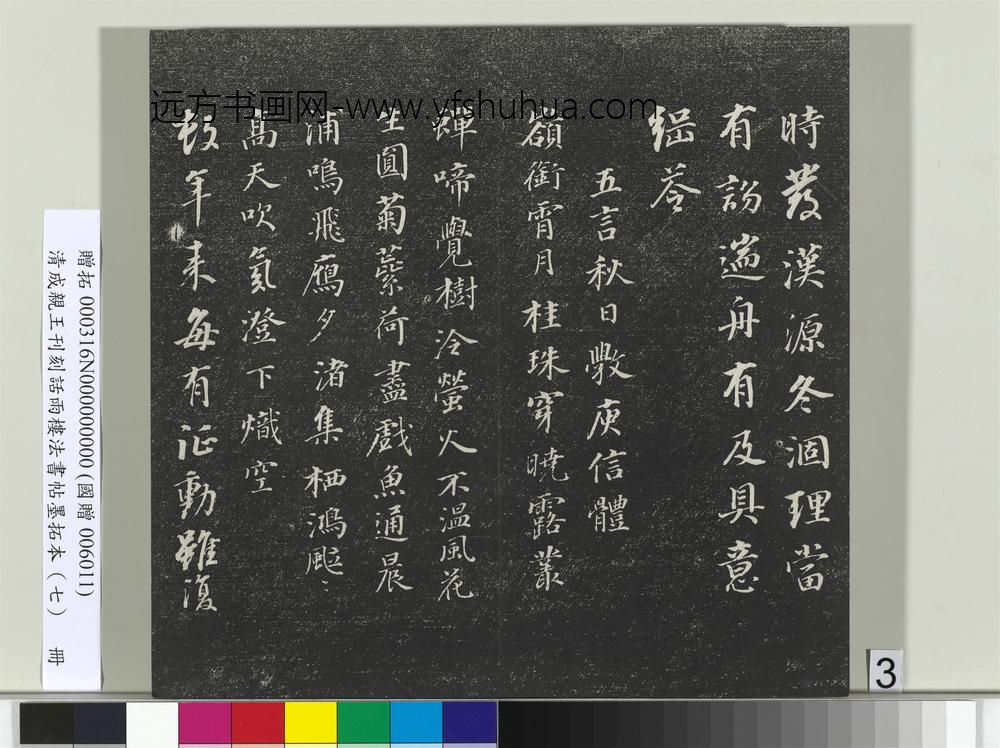 時發漢源冬涸理當
有訪遄舟有及具意
五言秋日斆庾信體
嶺銜霄月桂珠穿曉露叢
蟬啼覺樹冷螢火不溫風花
生圓菊蘂荷盡戲魚通晨
浦鳴飛鴈夕渚集栖鴻颸〻
高天吹氛澄下熾空
年來每有征動雖復
远方书画网-www.yfshuhua.com
贈拓 000316N000000000(國贈 006011)
清成親王刊刻話雨樓法書帖墨拓本（七） 冊
3